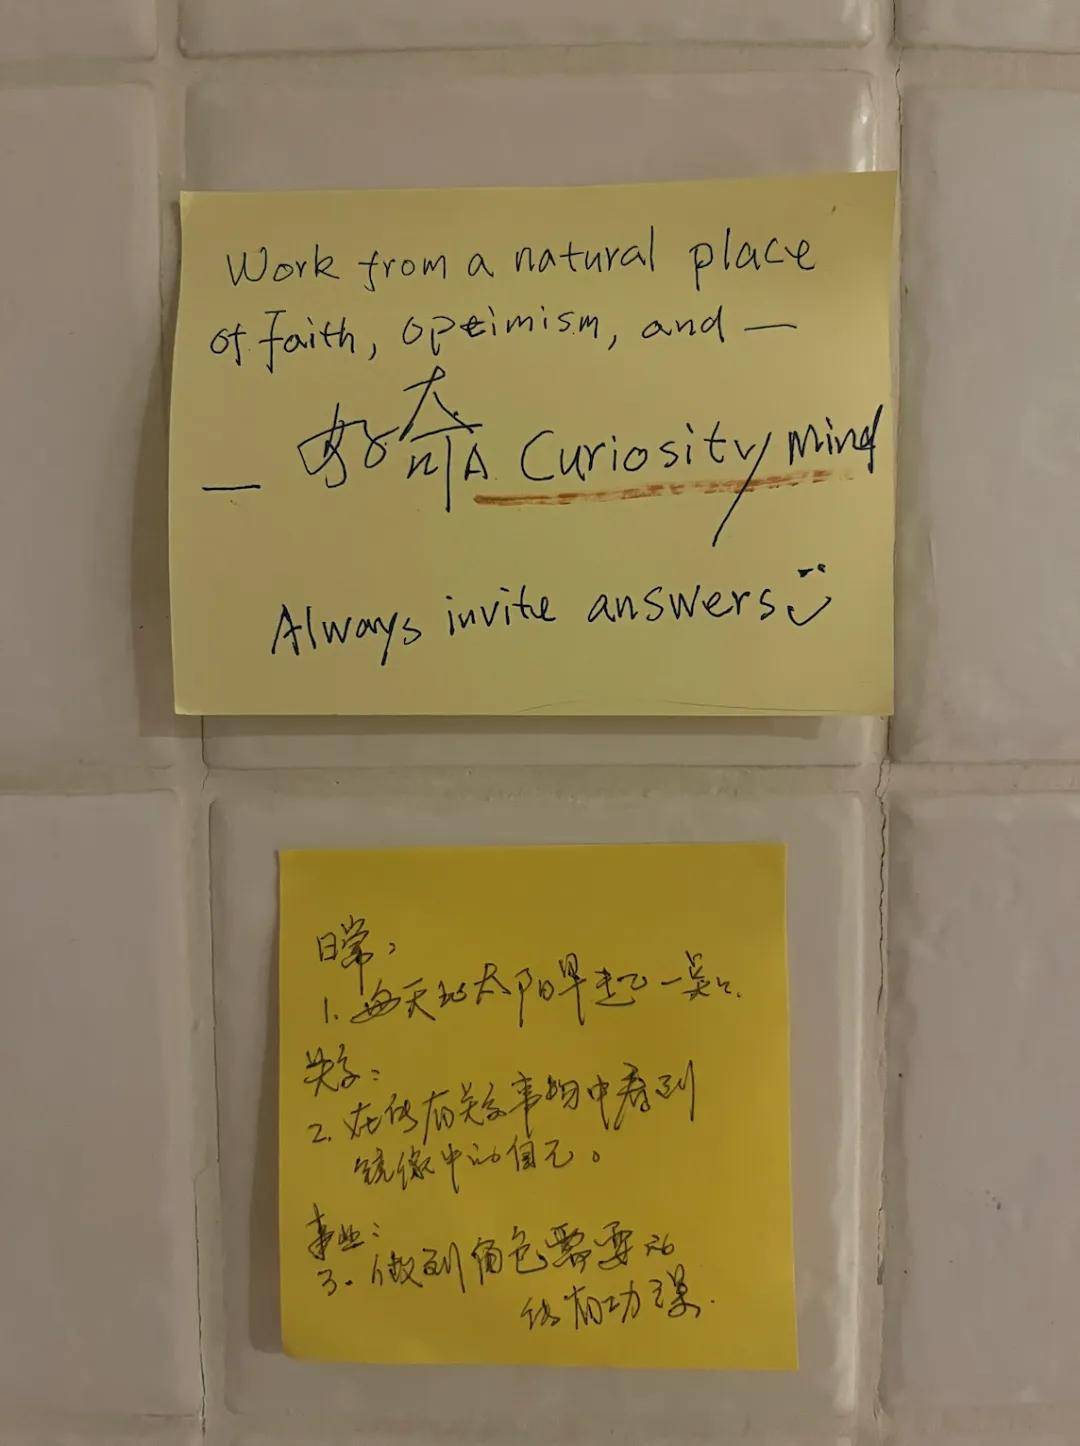 Work from a natural place
of faith, optimism, and —
— 好奇 Curiosity Mind
Always invite answers
日常:
1. 每天比太阳早起一点.
关系:
2. 在所有关系事物中看到
镜像中的自己。
事业:
3. 做到角色需要的
所有功课.